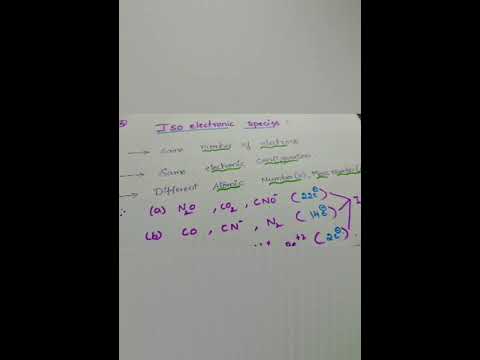 5) Iso electronic species :
→ Same number of electrons
→ Same electronic configuration
→ Different Atomic Number(z), Mass
(a) N₂O , CO₂ , CNO⁻ (22e⁻)
(b) CO , CN⁻ , N₂ (14e⁻)
Be⁺² (2e⁻)